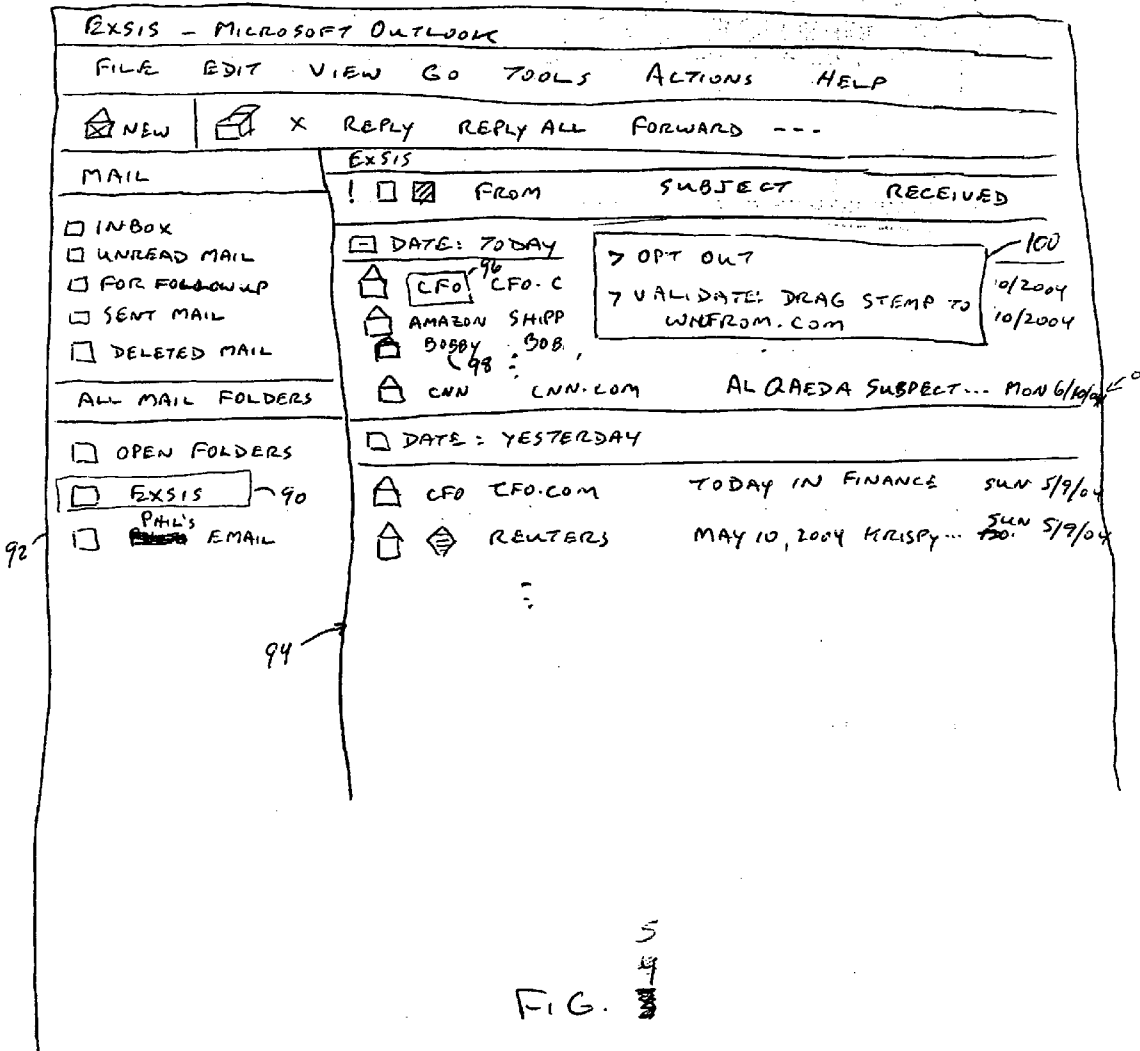 EXSIS - MICROSOFT OUTLOOK
FILE EDIT VIEW GO TOOLS ACTIONS HELP
NEW X REPLY REPLY ALL FORWARD ---
MAIL
INBOX
UNREAD MAIL
FOR FOLLOWUP
SENT MAIL
DELETED MAIL
ALL MAIL FOLDERS
OPEN FOLDERS
EXSIS 90
PHIL'S
EMAIL
92
EXSIS
! FROM SUBJECT RECEIVED
DATE: TODAY
CFO 96 CFO.C 10/2004
AMAZON SHIPP 10/2004
BOBBY BOB.
98
> OPT OUT 100
> VALIDATE: DRAG STEMP TO
WNFROM.COM
CNN CNN.COM AL QAEDA SUSPECT... MON 6/10/04
DATE: YESTERDAY
CFO CFO.COM TODAY IN FINANCE SUN 5/9/04
REUTERS MAY 10, 2004 KRISPY... SUN 5/9/04
94
5
4
FIG.